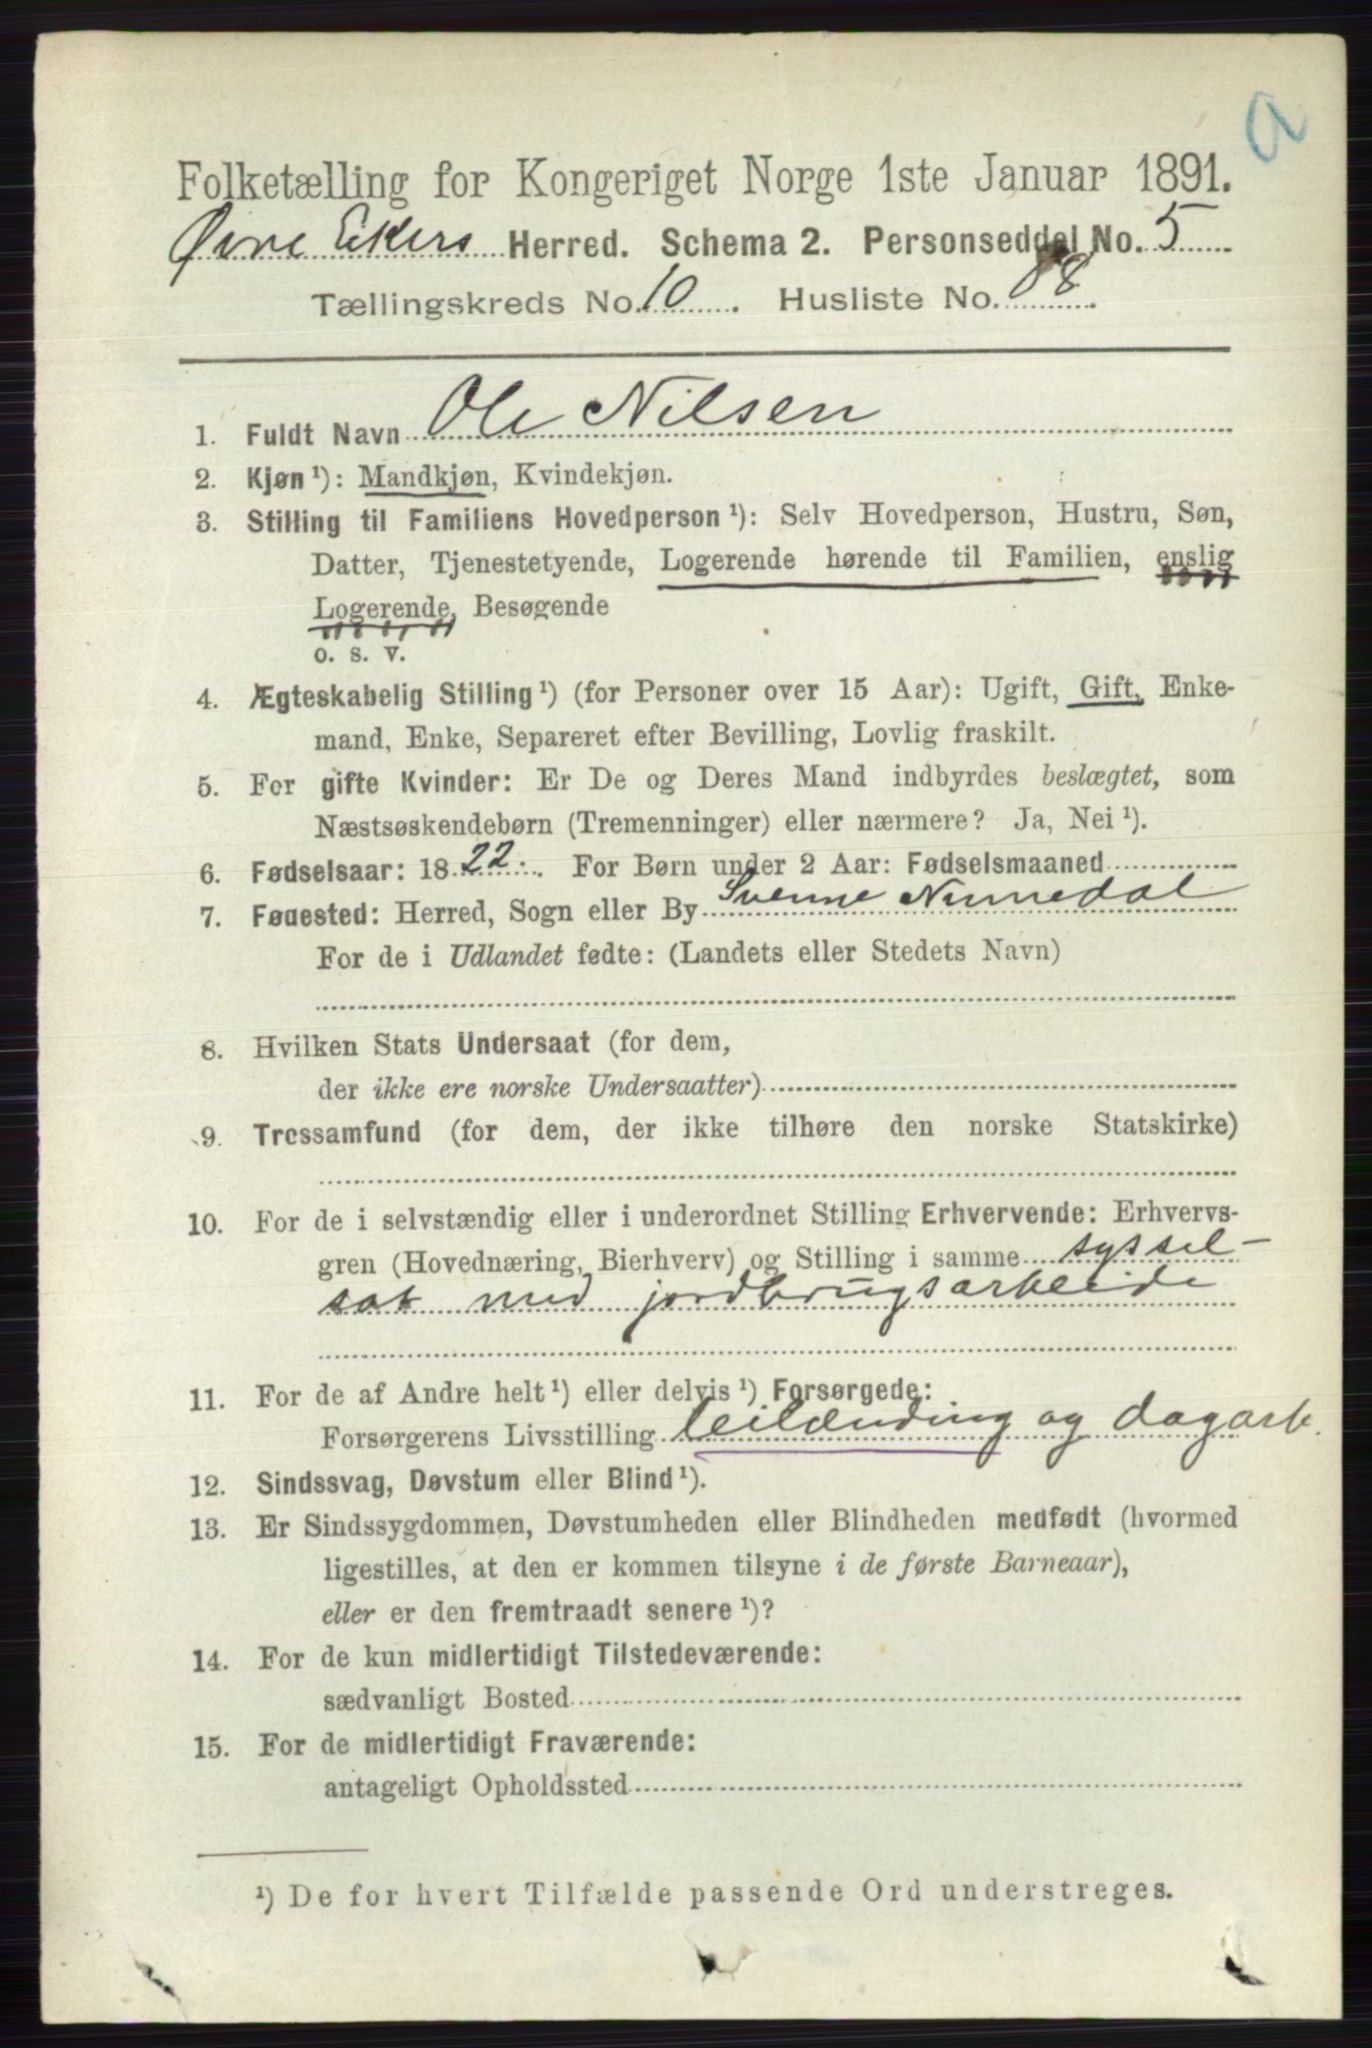 a
Folketælling for Kongeriget Norge 1ste Januar 1891.
Øvre Ekers Herred. Schema 2. Personseddel No. 5
Tællingskreds No. 10. Husliste No. 88.
1. Fuldt Navn Ole Nilsen
2. Kjøn¹): Mandkjøn, Kvindekjøn.
3. Stilling til Familiens Hovedperson¹): Selv Hovedperson, Hustru, Søn,
Datter, Tjenestetyende, Logerende hørende til Familien, enslig
Logerende, Besøgende
o. s. v.
4. Ægteskabelig Stilling¹) (for Personer over 15 Aar): Ugift, Gift, Enke-
mand, Enke, Separeret efter Bevilling, Lovlig fraskilt.
5. For gifte Kvinder: Er De og Deres Mand indbyrdes beslægtet, som
Næstsøskendebørn (Tremenninger) eller nærmere? Ja, Nei¹).
6. Fødselsaar: 1822. For Børn under 2 Aar: Fødselsmaaned
7. Fødested: Herred, Sogn eller By Svenne Numedal
For de i Udlandet fødte: (Landets eller Stedets Navn)
8. Hvilken Stats Undersaat (for dem,
der ikke ere norske Undersaatter)
9. Trossamfund (for dem, der ikke tilhøre den norske Statskirke)
10. For de i selvstændig eller i underordnet Stilling Erhvervende: Erhvervs-
gren (Hovednæring, Bierhverv) og Stilling i samme syssel-
sat med jordbrugsarbeide
11. For de af Andre helt¹) eller delvis¹) Forsørgede:
Forsørgerens Livsstilling leilænding og dagarb.
12. Sindssvag, Døvstum eller Blind¹).
13. Er Sindssygdommen, Døvstumheden eller Blindheden medfødt (hvormed
ligestilles, at den er kommen tilsyne i de første Barneaar),
eller er den fremtraadt senere¹)?
14. For de kun midlertidigt Tilstedeværende:
sædvanligt Bosted
15. For de midlertidigt Fraværende:
antageligt Opholdssted
¹) De for hvert Tilfælde passende Ord understreges.